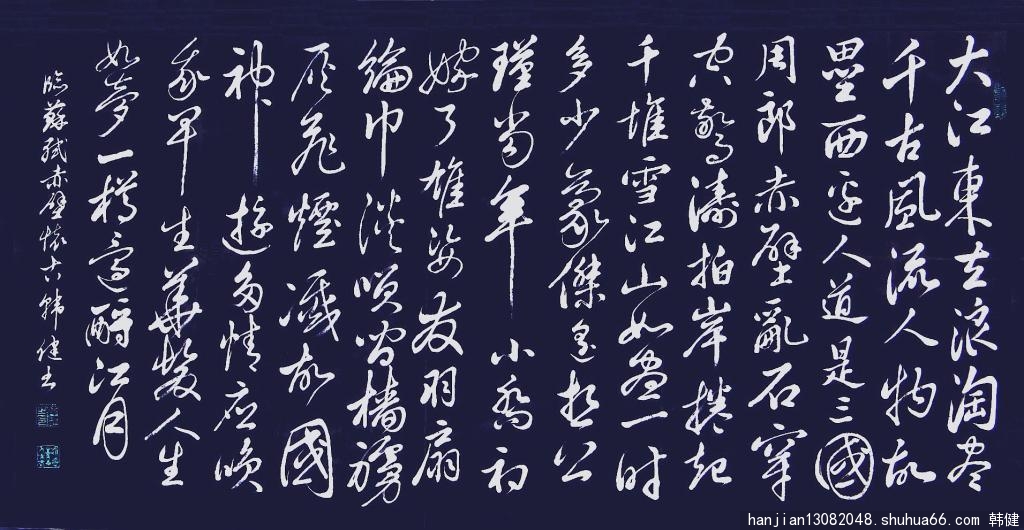 大江東去浪淘盡
千古風流人物故
壘西邊人道是三國
周郎赤壁亂石穿
空驚濤拍岸捲起
千堆雪江山如畫一時
多少豪傑遙想公
瑾當年小喬初
嫁了雄姿发羽扇
綸巾談笑間檣艣
灰飛煙滅故國
神遊多情应笑
我早生華髮人生
如夢一樽還酹江月
臨蘇軾赤壁懷古韓健書
hanjian13082048.shuhua66.com 韩健